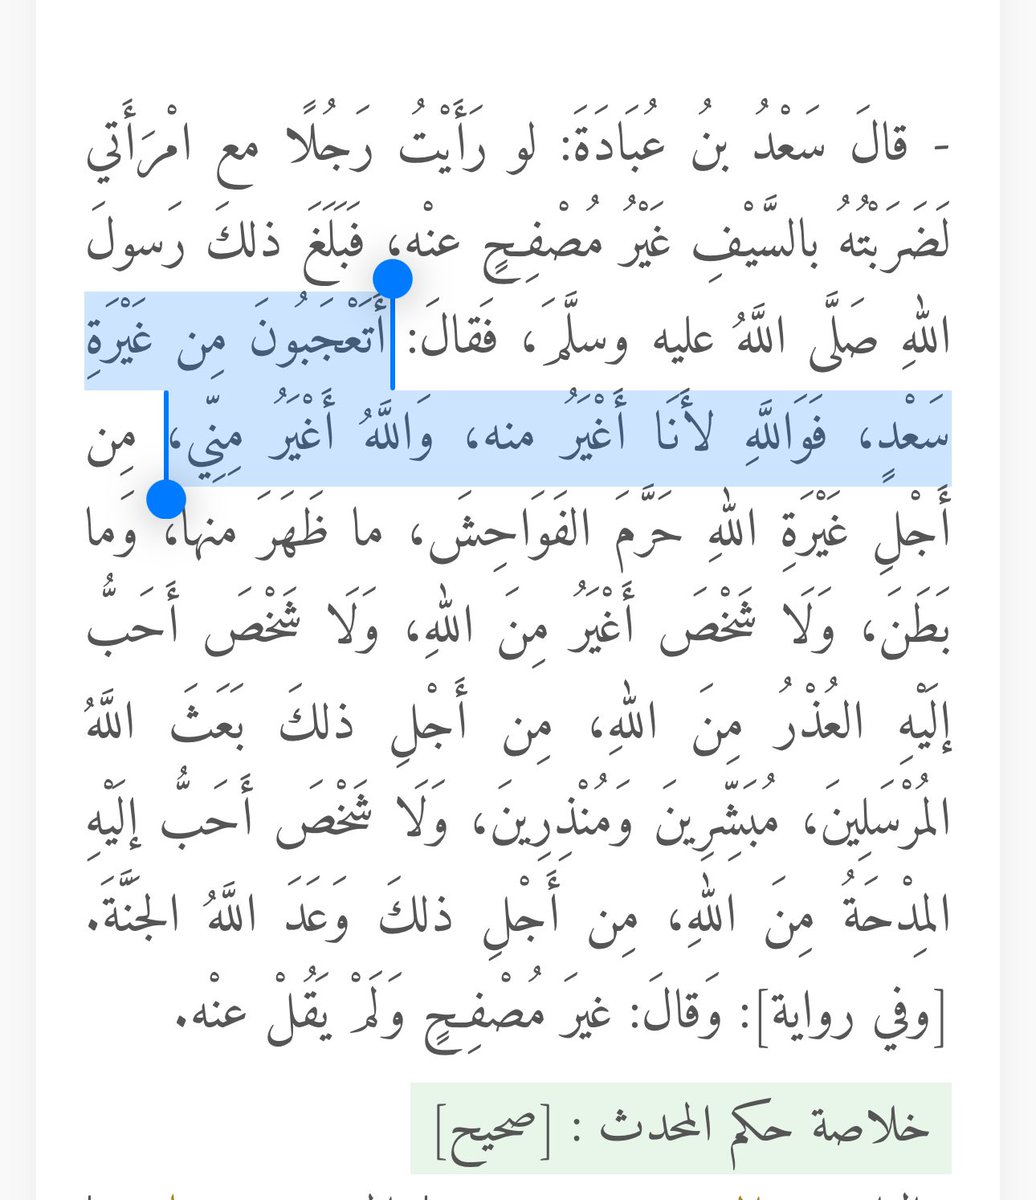 - قالَ سَعْدُ بنُ عُبَادَةَ: لو رَأَيْتُ رَجُلًا مع امْرَأَتي
لَضَرَبْتُهُ بالسَّيْفِ غَيْرُ مُصْفِحٍ عنْه، فَبَلَغَ ذلكَ رَسولَ
اللهِ صَلَّى اللَّهُ عليه وسلَّمَ، فَقالَ: أَتَعْجَبُونَ مِن غَيْرَةِ
سَعْدٍ، فَوَاللَّهِ لأَنَا أَغْيَرُ منه، وَاللَّهُ أَغْيَرُ مِنِّي، مِن
أَجْلِ غَيْرَةِ اللهِ حَرَّمَ الفَوَاحِشَ، ما ظَهَرَ منها، وَما
بَطَنَ، وَلَا شَخْصَ أَغْيَرُ مِنَ اللهِ، وَلَا شَخْصَ أَحَبُّ
إلَيْهِ العُذْرُ مِنَ اللهِ، مِن أَجْلِ ذلكَ بَعَثَ اللَّهُ
المُرْسَلِينَ، مُبَشِّرِينَ وَمُنْذِرِينَ، وَلَا شَخْصَ أَحَبُّ إلَيْهِ
المِدْحَةُ مِنَ اللهِ، مِن أَجْلِ ذلكَ وَعَدَ اللَّهُ الجَنَّةَ.
[وفي رواية]: وَقالَ: غيرَ مُصْفِحٍ وَلَمْ يَقُلْ عنْه.
خلاصة حكم المحدث : [صحيح]